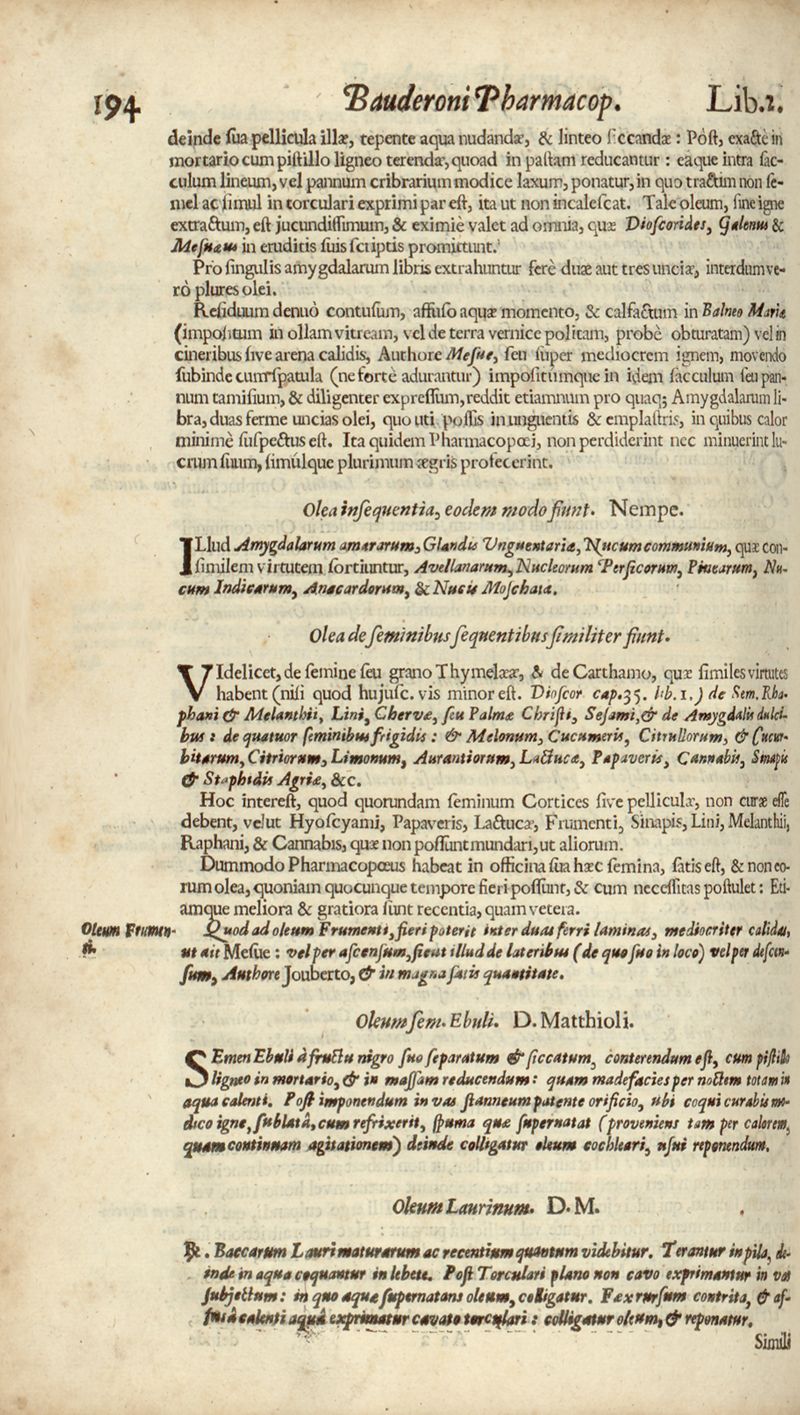 194 Bauderoni Pharmacop. Lib.1.
deinde ſua pellicula illæ, tepente aqua nudandæ, & linteo ſiccandæ : Póſt, exactè in
mortario cum piſtillo ligneo terendæ, quoad in paſtam reducantur : eaque intra ſac-
culum lineum, vel pannum cribrarium modice laxum, ponatur, in quo tractim non ſe-
mel ac ſimul in torculari exprimi par eſt, ita ut non incaleſcat. Tale oleum, ſine igne
extractum, eſt jucundiſſimum, & eximiè valet ad omnia, quæ Dioſcorides, Galenus &
Meſuæus in eruditis ſuis ſcriptis promittunt.
Pro ſingulis amygdalarum libris extrahuntur ferè duæ aut tres unciæ, interdum ve-
rò plures olei.
Reſiduum denuò contuſum, affuſo aquæ momento, & calfactum in Balneo Mariæ
(impoſitum in ollam vitream, vel de terra vernice politam, probè obturatam) vel in
cineribus ſive arena calidis, Authore Meſue, ſeu ſuper mediocrem ignem, movendo
ſubinde cum ſpatula (ne fortè adurantur) impoſitumque in idem ſacculum ſeu pan-
num tamiſium, & diligenter expreſſum, reddit etiamnum pro quaq; Amygdalarum li-
bra, duas ferme uncias olei, quo uti poſſis in unguentis & emplaſtris, in quibus calor
minimè ſuſpectus eſt. Ita quidem Pharmacopœi, non perdiderint nec minuerint lu-
crum ſuum, ſimúlque plurimum ægris profecerint.
Olea inſequentia, eodem modo fiunt. Nempe.
ILlud Amygdalarum amararum, Glandis Unguentariæ, Nucum communium, quæ con-
ſimilem virtutem ſortiuntur, Avellanarum, Nucleorum Perſicorum, Pinearum, Nu-
cum Indicarum, Anacardorum, & Nucis Moſchatæ.
Olea de ſeminibus ſequentibus ſimiliter fiunt.
VIdelicet, de ſemine ſeu grano Thymelææ, & de Carthamo, quæ ſimiles virtutes
habent (niſi quod hujuſc. vis minor eſt. Dioſcor. cap. 35. lib. 1.) de Sem. Rha-
phani & Melanthii, Lini, Chervæ, ſeu Palmæ Chriſti, Seſami, & de Amygdalis dulci-
bus : de quatuor ſeminibus frigidis : & Melonum, Cucumeris, Citrullorum, & Cucur-
bitarum, Citriorum, Limonum, Aurantiorum, Lactucæ, Papaveris, Cannabis, Sinapis
& Staphidis Agriæ, &c.
Hoc intereſt, quod quorundam ſeminum Cortices ſive pelliculæ, non curæ eſſe
debent, velut Hyoſcyami, Papaveris, Lactucæ, Frumenti, Sinapis, Lini, Melanthii,
Raphani, & Cannabis, quæ non poſſunt mundari, ut aliorum.
Dummodo Pharmacopœus habeat in officina ſua hæc ſemina, ſatis eſt, & non eo-
rum olea, quoniam quocunque tempore fieri poſſunt, & cum neceſſitas poſtulet : Eti-
amque meliora & gratiora ſunt recentia, quam vetera.
Oleum Frumen-
ti.
Quod ad oleum Frumenti, fieri poterit inter duas ferri laminas, mediocriter calidas,
ut ait Meſue : vel per aſcenſum, ſicut illud de lateribus (de quo ſuo in loco) vel per deſcen-
ſum, Authore Jouberto, & in magna ſatis quantitate.
Oleum ſem. Ebuli. D. Matthioli.
SEmen Ebuli à fructu nigro ſuo ſeparatum & ſiccatum, conterendum eſt, cum piſtillo
ligneo in mortario, & in maſſam reducendum : quam madefacies per noctem totam in
aqua calenti. Poſt imponendum in vas ſtanneum patente orificio, ubi coqui curabis mo-
dico igne, ſublatâ, cum refrixerit, ſpuma quæ ſupernatat (proveniens tam per calorem,
quam continuam agitationem) deinde colligatur oleum cochleari, uſui reponendum.
Oleum Laurinum. D. M.
℞. Baccarum Lauri maturarum ac recentium quantum videbitur. Terantur in pila, de-
inde in aqua coquantur in lebete. Poſt Torculari plano non cavo exprimantur in vas
ſubjectum : in quo aquæ ſupernatans oleum, colligatur. Fæx rurſum contrita, & af-
fuſâ calenti aquâ exprimatur cavato torculari : colligatur oleum, & reponatur.
Simili